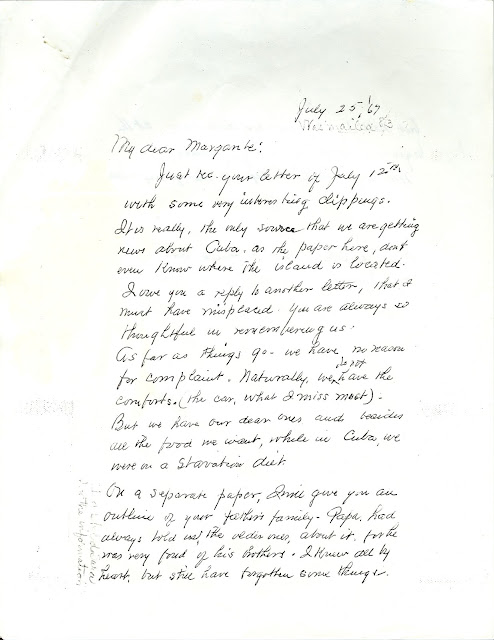 July 25, '67
Rec'mailed 8/3
My dear Margarite:
Just rec. your letter of July 12th,
with some very interesting clippings.
It is really, the only source that we are getting
news about Cuba, as the paper here, dont
even know where the island is located.
I owe you a reply to another letter, that I
must have misplaced. You are always so
thoughtful in remembering us.
As far as things go- we have no reason
for complaint. Naturally, we do not have the
comforts. (the car, what I miss most).
But we have our dear ones and besides
all the food we want, while in Cuba, we
were on a starvation diet.
On a separate paper, I will give you an
outline of your father's family- Papa, had
always told us, the older ones, about it, for he
was very fond of his brothers. I knew all by
heart, but still have forgotten some things.